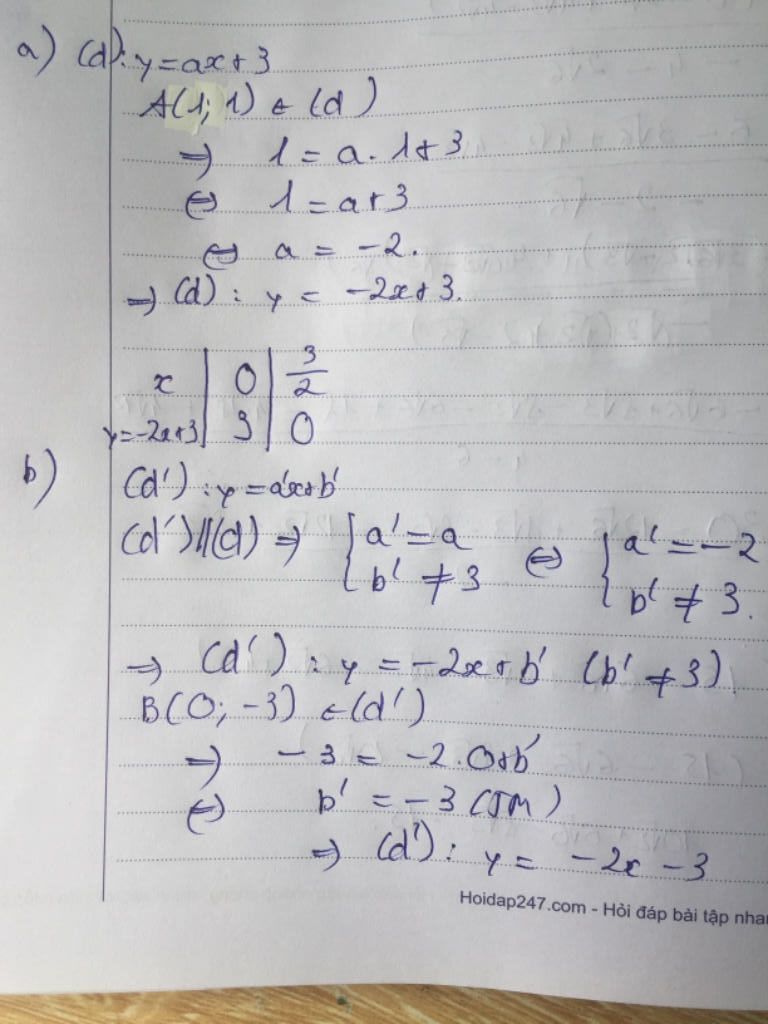 a) (d): y = ax + 3
A(1; 1) ∈ (d)
⇒ 1 = a. 1 + 3
⇔ 1 = a + 3
⇔ a = -2.
⇒ (d) : y = -2x + 3.
x | 0 | 3/2
y = -2x + 3 | 3 | 0
b) (d') : y = a'x + b'
(d') // (d) ⇒ { a' = a ; b' ≠ 3 ⇔ { a' = -2 ; b' ≠ 3.
⇒ (d') : y = -2x + b' (b' ≠ 3)
B(0; -3) ∈ (d')
⇒ -3 = -2.0 + b'
⇔ b' = -3 (TM)
⇒ (d') : y = -2x - 3
Hoidap247.com - Hỏi đáp bài tập nha